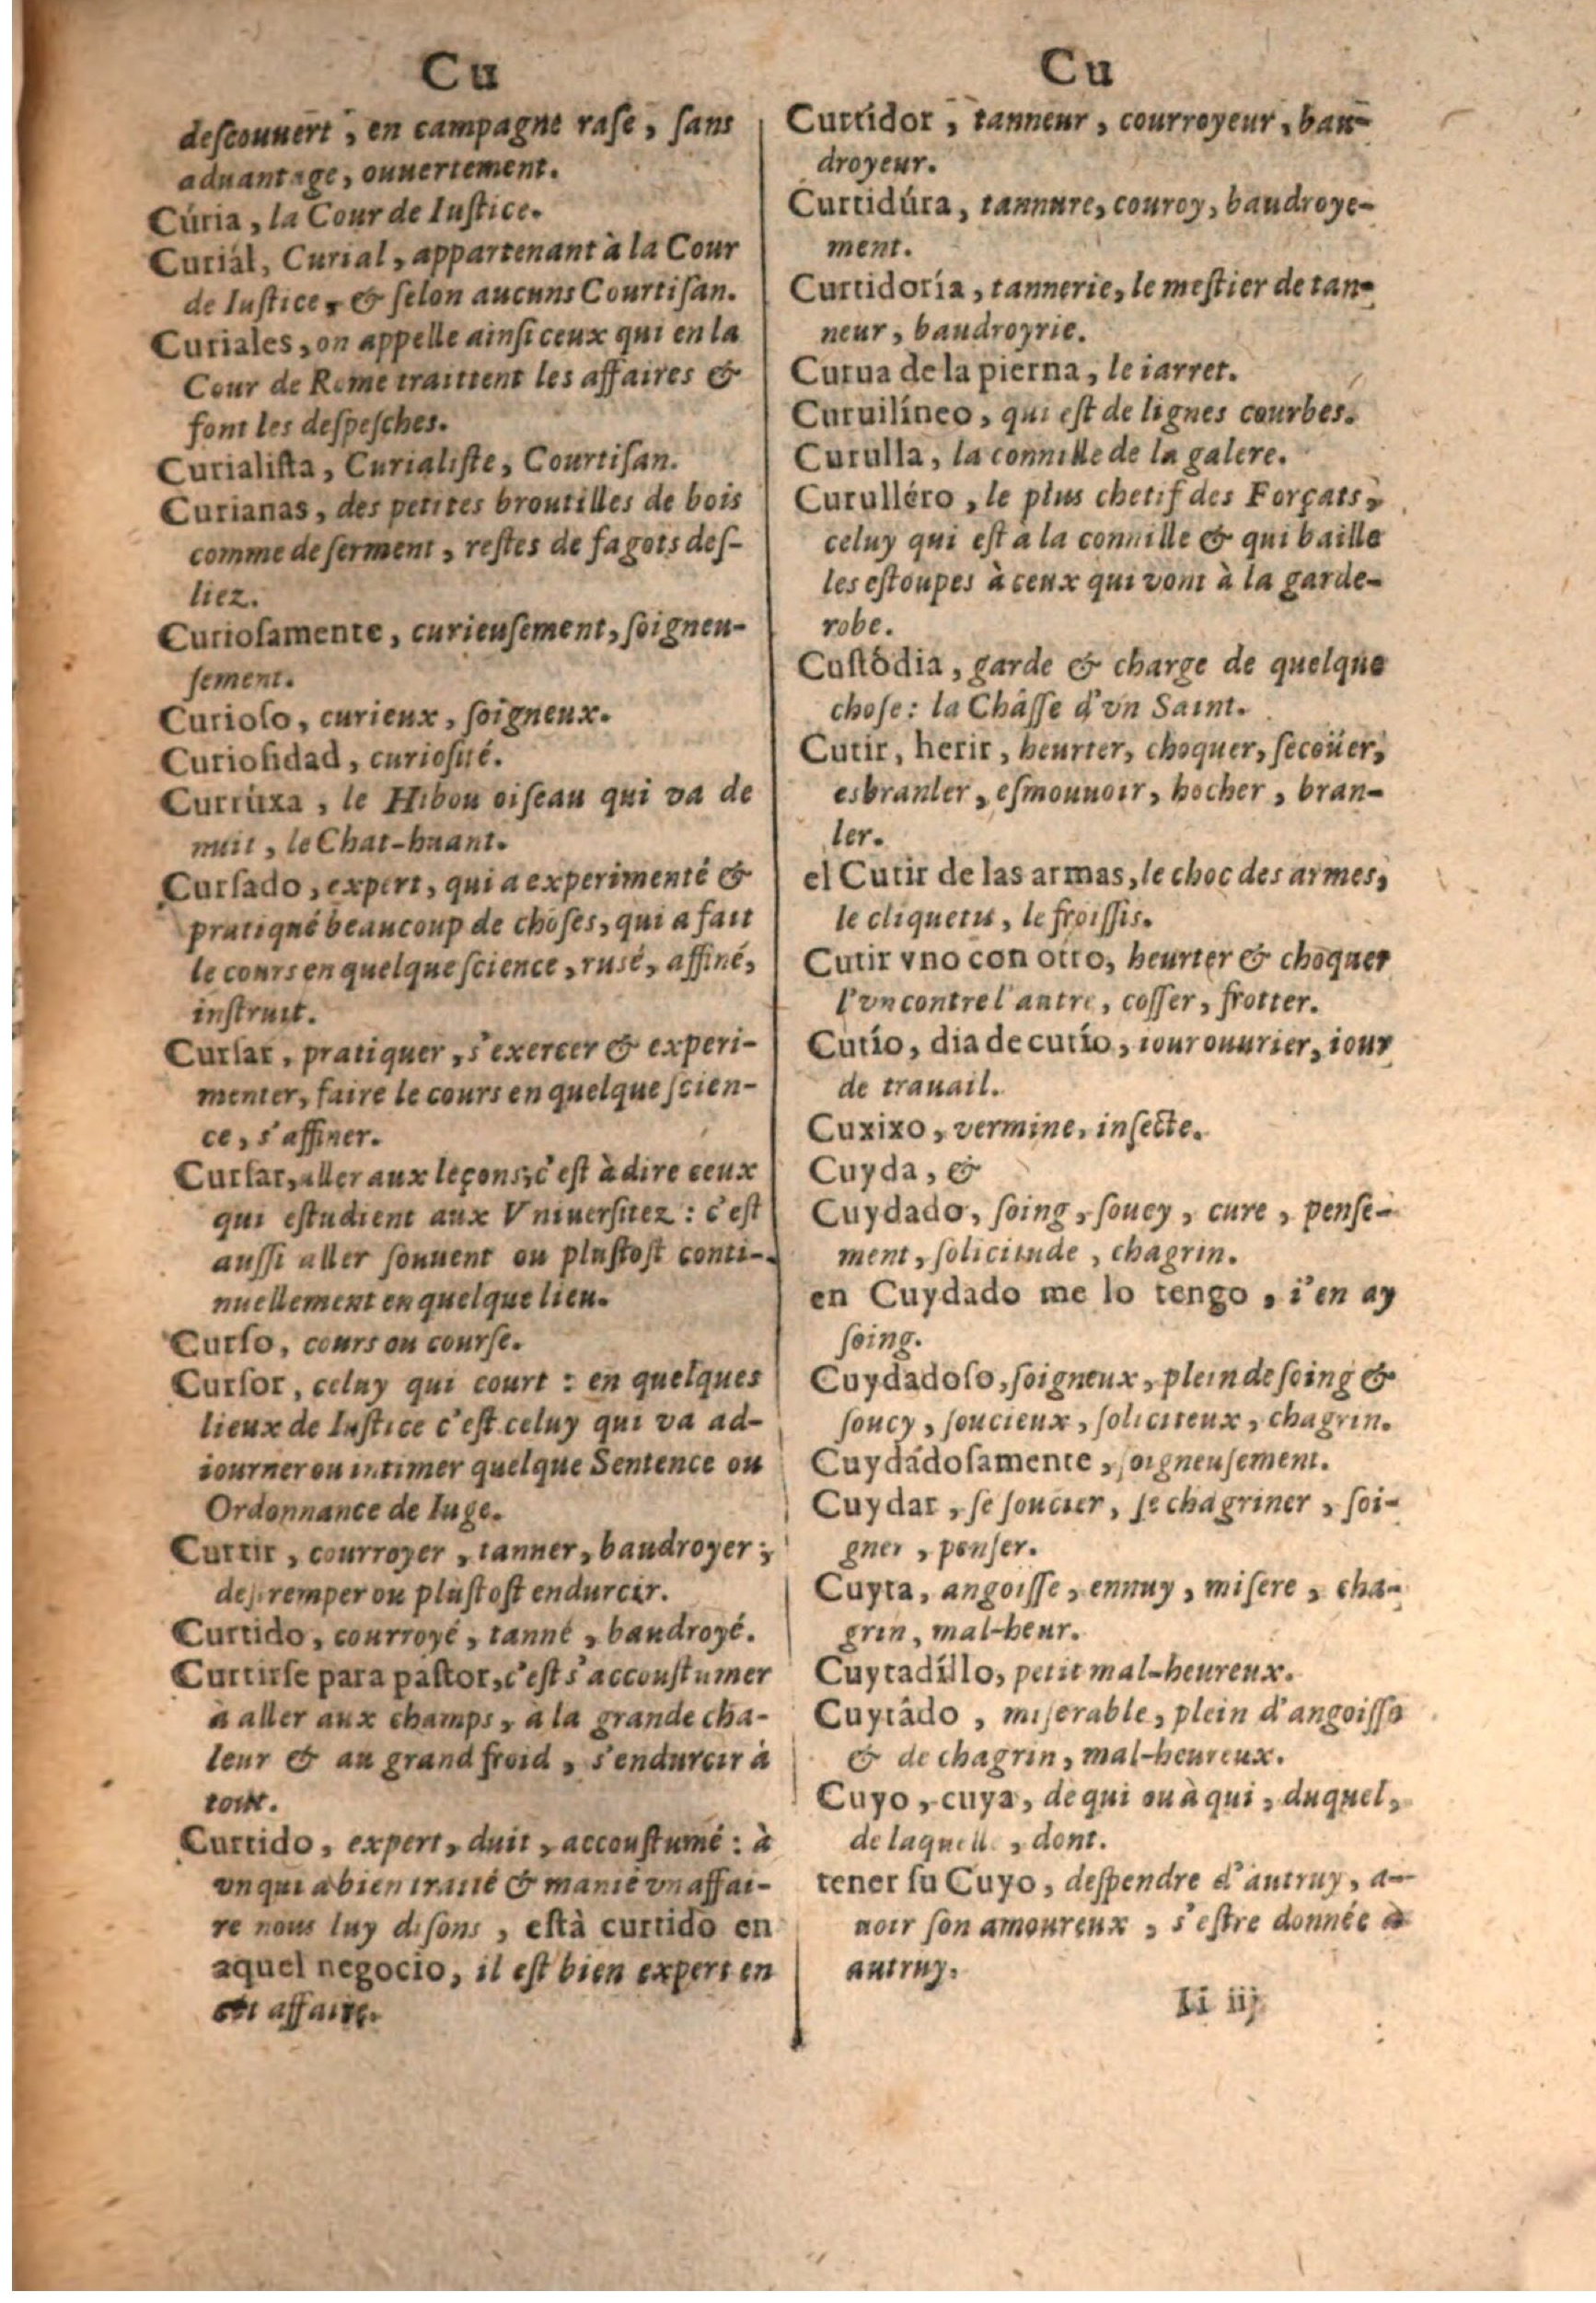 Cu
deſcouuert, en campagne raſe, ſans
aduantage, ouuertement.
Cúria, la Cour de Iuſtice.
Curiál, Curial, appartenant à la Cour
de Iuſtice, & ſelon aucuns Courtiſan.
Curiales, on appelle ainſi ceux qui en la
Cour de Rome traittent les affaires &
font les deſpeſches.
Curialiſta, Curialiſte, Courtiſan.
Curianas, des petites broutilles de bois
comme de ſerment, reſtes de fagots deſ-
liez.
Curioſamente, curieuſement, ſoigneu-
ſement.
Curioſo, curieux, ſoigneux.
Curioſidad, curioſité.
Curruxa, le Hibou oiſeau qui va de
nuit, le Chat-huant.
Curſado, expert, qui a experimenté &
pratiqué beaucoup de choſes, qui a fait
le cours en quelque ſcience, ruſé, affiné,
inſtruit.
Curſar, pratiquer, s'exercer & experi-
menter, faire le cours en quelque ſcien-
ce, s'affiner.
Curſar, aller aux leçons, c'eſt à dire ceux
qui eſtudient aux Vniuerſitez: c'eſt
auſſi aller ſouuent ou pluſtoſt conti-
nuellement en quelque lieu.
Curſo, cours ou courſe.
Curſor, celuy qui court: en quelques
lieux de Iuſtice c'eſt celuy qui va ad-
iourner ou intimer quelque Sentence ou
Ordonnance de Iuge.
Curtir, courroyer, tanner, baudroyer;
deſtremper ou pluſtoſt endurcir.
Curtido, courroyé, tanné, baudroyé.
Curtirſe para paſtor, c'eſt s'accouſtumer
à aller aux champs, à la grande cha-
leur & au grand froid, s'endurcir à
tout.
Curtido, expert, duit, accouſtumé: à
vn qui a bien traité & manié vn affai-
re nous luy diſons, eſtà curtido en
aquel negocio, il eſt bien expert en
cét affaire.
Cu
Curtidor, tanneur, courroyeur, bau-
droyeur.
Curtidúra, tannure, couroy, baudroye-
ment.
Curtidoría, tannerie, le meſtier de tan-
neur, baudroyrie.
Curua de la pierna, le iarret.
Curuilíneo, qui eſt de lignes courbes.
Curulla, la connille de la galere.
Curulléro, le plus chetif des Forçats,
celuy qui eſt à la connille & qui baille
les eſtoupes à ceux qui vont à la garde-
robe.
Cuſtódia, garde & charge de quelque
choſe: la Châſſe d'vn Saint.
Cutir, herir, heurter, choquer, ſecoüer,
esbranler, eſmouuoir, hocher, bran-
ler.
el Cutir de las armas, le choc des armes,
le cliquetis, le froiſſis.
Cutir vno con otro, heurter & choquer
l'vn contre l'autre, coſſer, frotter.
Cutío, dia de cutío, iour ouurier, iour
de trauail.
Cuxixo, vermine, inſecte.
Cuyda, &
Cuydado, ſoing, ſoucy, cure, penſe-
ment, ſolicitude, chagrin.
en Cuydado me lo tengo, i'en ay
ſoing.
Cuydadoſo, ſoigneux, plein de ſoing &
ſoucy, ſoucieux, ſoliciteux, chagrin.
Cuydádoſamente, ſoigneuſement.
Cuydar, ſe ſoucier, ſe chagriner, ſoi-
gner, penſer.
Cuyta, angoiſſe, ennuy, miſere, cha-
grin, mal-heur.
Cuytadíllo, petit mal-heureux.
Cuytádo, miſerable, plein d'angoiſſe
& de chagrin, mal-heureux.
Cuyo, cuya, de qui ou à qui, duquel,
de laquelle, dont.
tener ſu Cuyo, deſpendre d'autruy, a-
uoir ſon amoureux, s'eſtre donnée à
autruy.
Ii iij